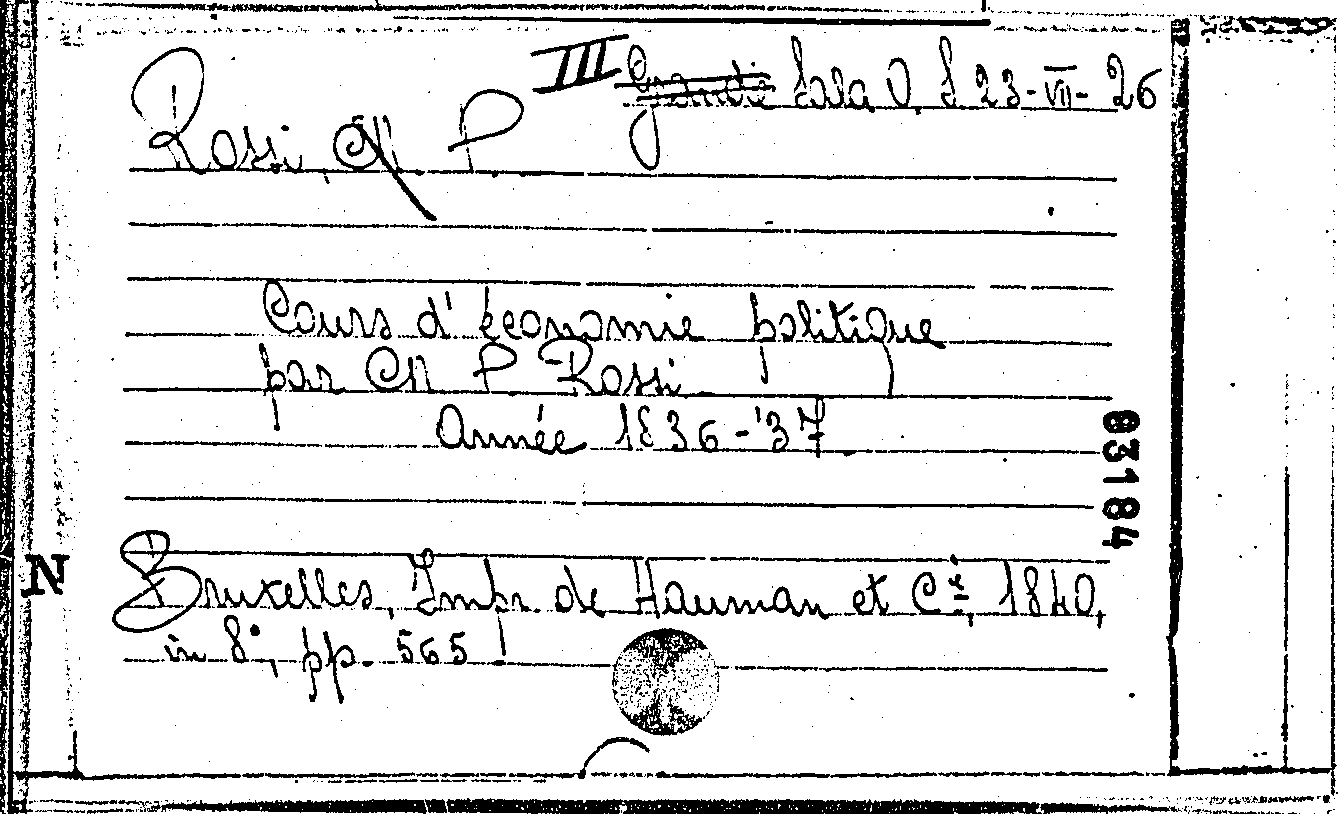 III Grande Sala O. S 23-VII-26
Rossi, M. P.
Cours d'économie politique
par M P Rossi
Année 1836-'37
83184
N
Bruxelles, Impr. de Hauman et Cie, 1840,
in 8°, pp. 565